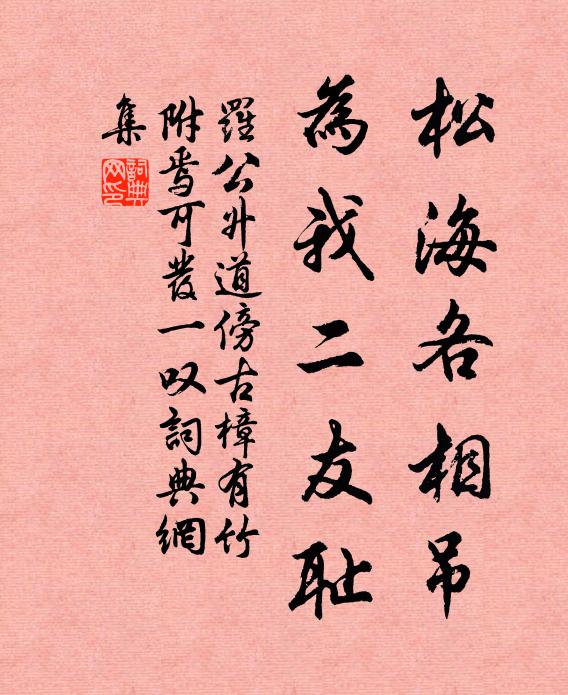 松海各相吊
為我二友耻
羅公升道傍古樟有竹
附焉可發一叹詞典網
集
詞典網印